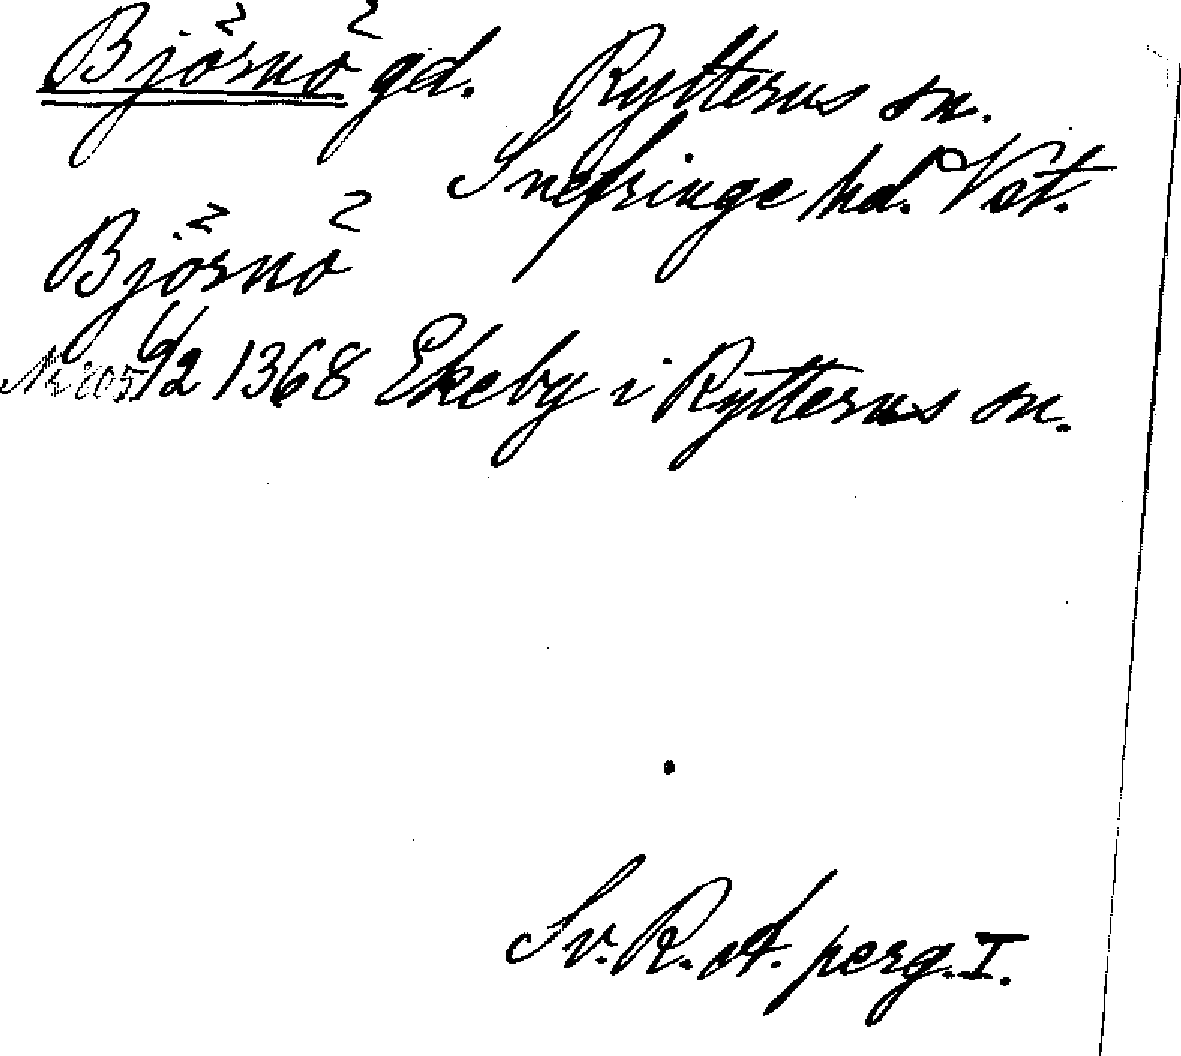 Björnö gd. Rytterns sn.
Snefringe hd. Vst.
Björnö
Nr 805 6/2 1368 Ekeby i Rytterns sn.
Sv. R. A. perg. I.